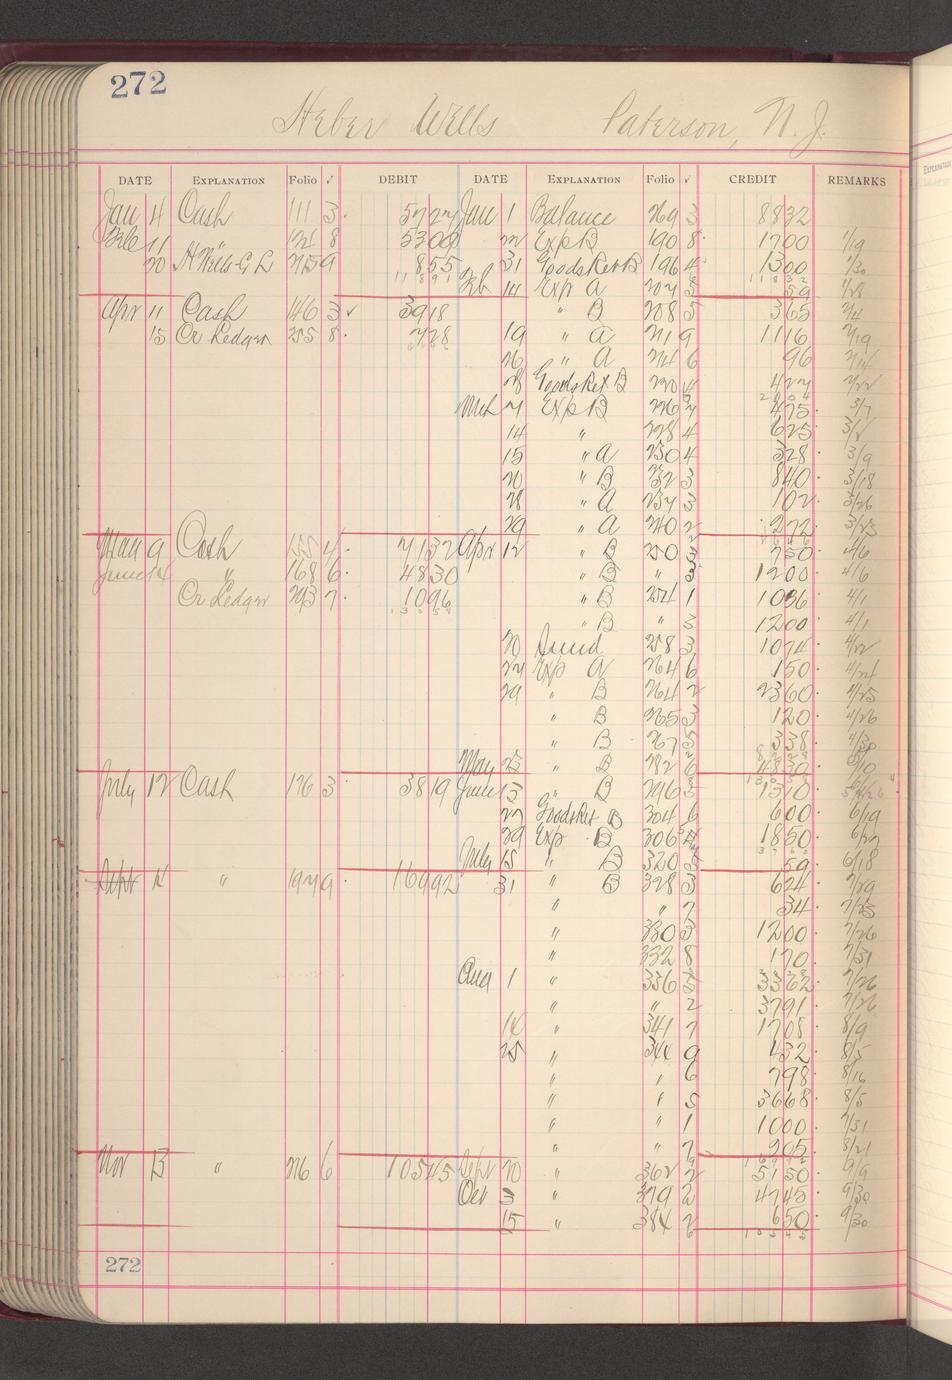 272
Heber Wells Paterson, N. J.
DATE EXPLANATION Folio ✓ DEBIT DATE EXPLANATION Folio ✓ CREDIT REMARKS
Jan 4 Cash 111 3 5727 Jan 1 Balance 269 3 8832
Feb 11 " 121 8 5309 22 Exp B 190 8 1700 1/19
20 H Wells G L 215 9 855 31 Goods Ret B 196 4 1300 1/30
11891 Feb 14 Exp A 207 5 59 1/28
Apr 11 Cash 146 3 ✓ 3918 " B 208 5 365 2/4
15 Or Ledger 255 8 728 19 " A 219 9 1116 2/19
26 " A 224 6 96 2/14
28 Goods Ret B 220 4 427 2/22
Mch 7 Exp B 226 7 475 3/7
14 " 228 4 625 3/8
15 " A 230 4 328 3/9
20 " B 232 3 840 3/18
28 " A 237 3 102 3/26
29 " A 240 2 272 3/25
May 9 Cash 155 4 7132 Apr 12 " B 250 3 750 4/6
June 14 " 168 6 4830 " B " 3 1200 4/6
Or Ledger 293 7 1096 " B 254 1 1036 4/1
13058 " B " 3 1200 4/1
20 258 3 1074 4/22
27 Exp A 264 6 150 4/24
29 " B 264 2 2360 4/25
" B 265 3 120 4/26
" B 267 5 338 4/30
May 23 " B 282 6 4830 5/10
July 12 Cash 176 3 3819 June 13 " B 296 3 1310 5/26
27 Goods Ret B 304 6 600 6/19
29 Exp B 306 1850 6/27
July 15 " B 320 5 59 6/18
Sept 12 " 197 9 16992 31 " B 328 3 624 7/29
" " 7 34 7/25
" 330 3 1200 7/26
" 332 8 170 7/31
Aug 1 " 336 5 3362 7/26
" " 2 3791 7/26
14 " 341 7 1708 8/9
25 " 344 9 432 8/5
" " 6 798 8/16
" " 5 3668 8/5
" " 1 1000 7/31
" " 7 205 8/21
Nov 13 " 216 6 10545 Sept 20 " 362 2 5150 9/9
Oct 3 " 379 2 4745 9/30
15 " 384 2 650 9/30
10545
272